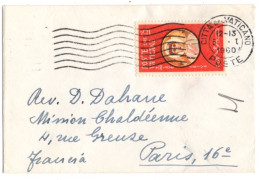 CITTÀ DEL VATICANO
12-13
1960
POSTE
Rev. D. Dahane
Mission Chaldéenne
4, rue Greuze
Francia Paris, 16e